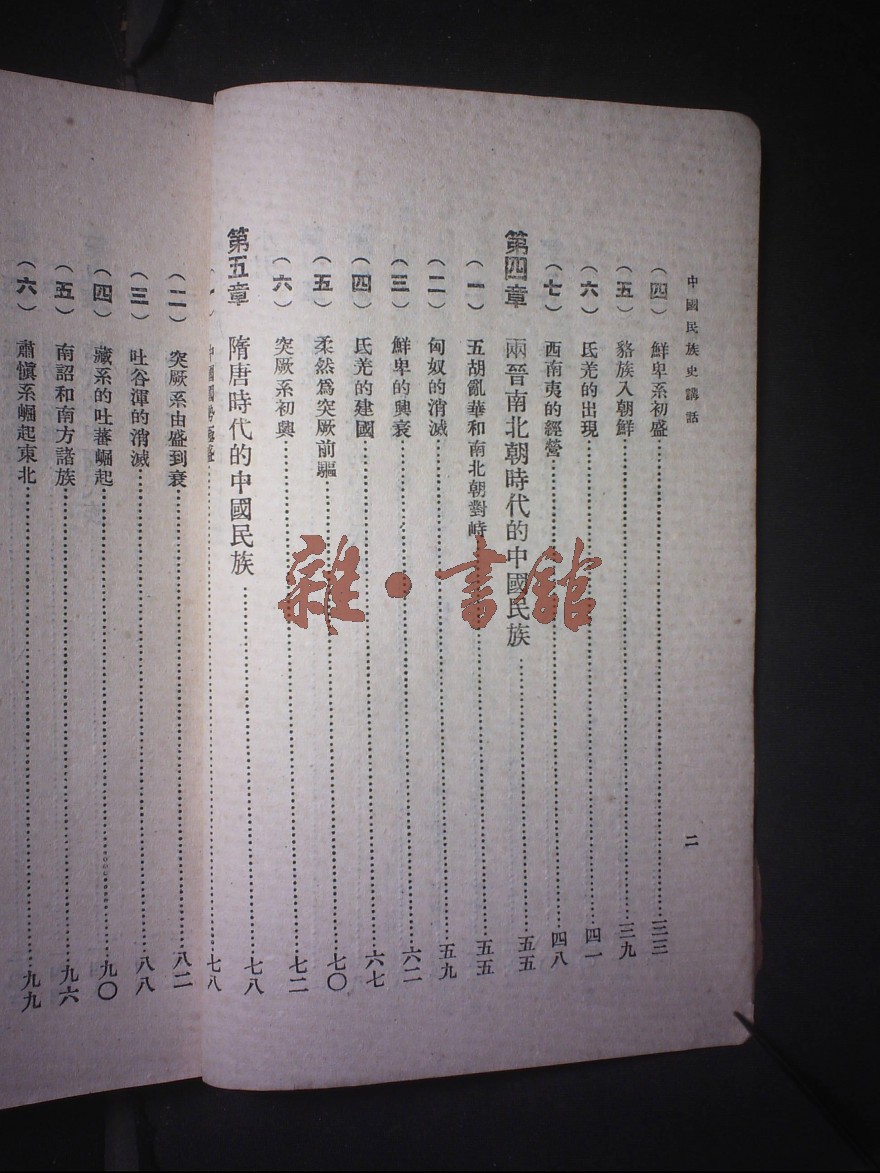 中國民族史講話
二
（四）鮮卑系初盛……三三
（五）貉族入朝鮮……三九
（六）氐羌的出現……四一
（七）西南夷的經營……四八
第四章 兩晉南北朝時代的中國民族……五五
（一）五胡亂華和南北朝對峙……五五
（二）匈奴的消滅……五九
（三）鮮卑的興衰……六二
（四）氐羌的建國……六七
（五）柔然爲突厥前驅……七〇
（六）突厥系初興……七二
第五章 隋唐時代的中國民族……七八
（一）中國國勢極盛……七八
（二）突厥系由盛到衰……八二
（三）吐谷渾的消滅……八八
（四）藏系的吐蕃崛起……九〇
（五）南詔和南方諸族……九六
（六）肅愼系崛起東北……九九
雜·書館